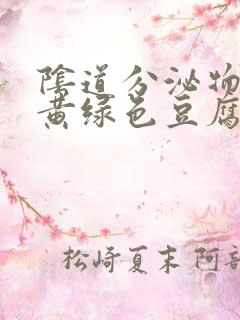 陰道分泌物
黄绿色豆腐
松崎夏末 阿部